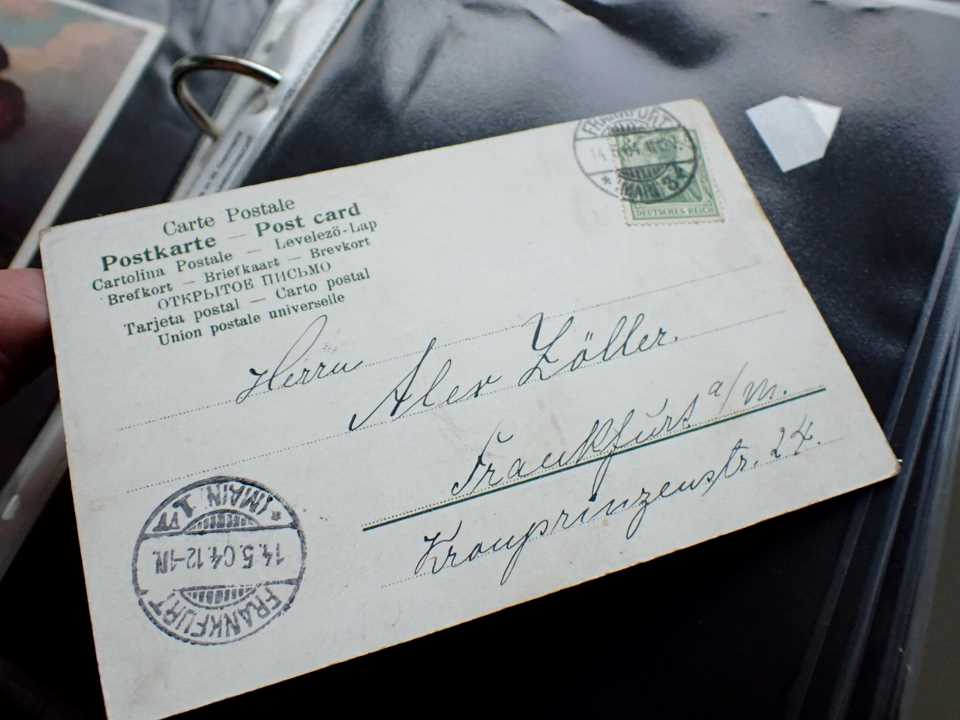 Carte Postale
Postkarte — Post card
Cartolina Postale — Levelező-Lap
Brefkort — Briefkaart — Brevkort
ОТКРЫТОЕ ПИСЬМО
Tarjeta postal — Carto postal
Union postale universelle
FRANKFURT
14.5.04
(MAIN)
DEUTSCHES REICH
Herrn
Alex Zöller.
Frankfurt a/M.
Kronprinzenstr. 24.
FRANKFURT
14.5.04.12-1N.
* (MAIN) 1.